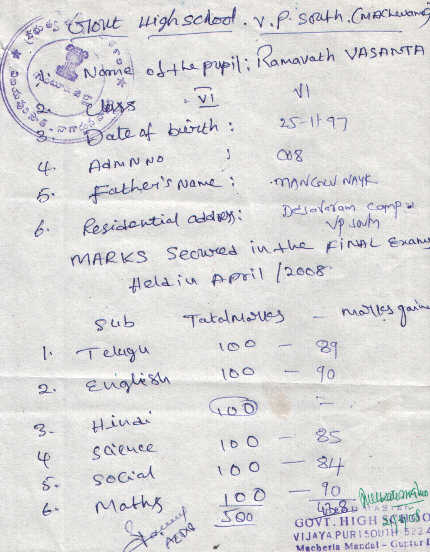 Govt High school. V.P. South. (Macherla)
1. Name of the pupil: Ramavath VASANTA
2. Class : VI VI
3. Date of birth : 25-11-97
4. Admn No : 608
5. Father's Name : MANGLU NAYK
6. Residential address: camp
VP South
MARKS Secured in the FINAL Exams
Held in April /2008
Sub Total Marks - Marks gaine
1. Telugu 100 - 89
2. English 100 - 90
3. Hindi 100 -
4 Science 100 - 85
5. Social 100 - 84
6. Maths 100 - 90
500 438
AEDA
GOVT. HIGH SCHOO
VIJAYAPURI SOUTH 522 4
Macherla Mandal - Guntur D